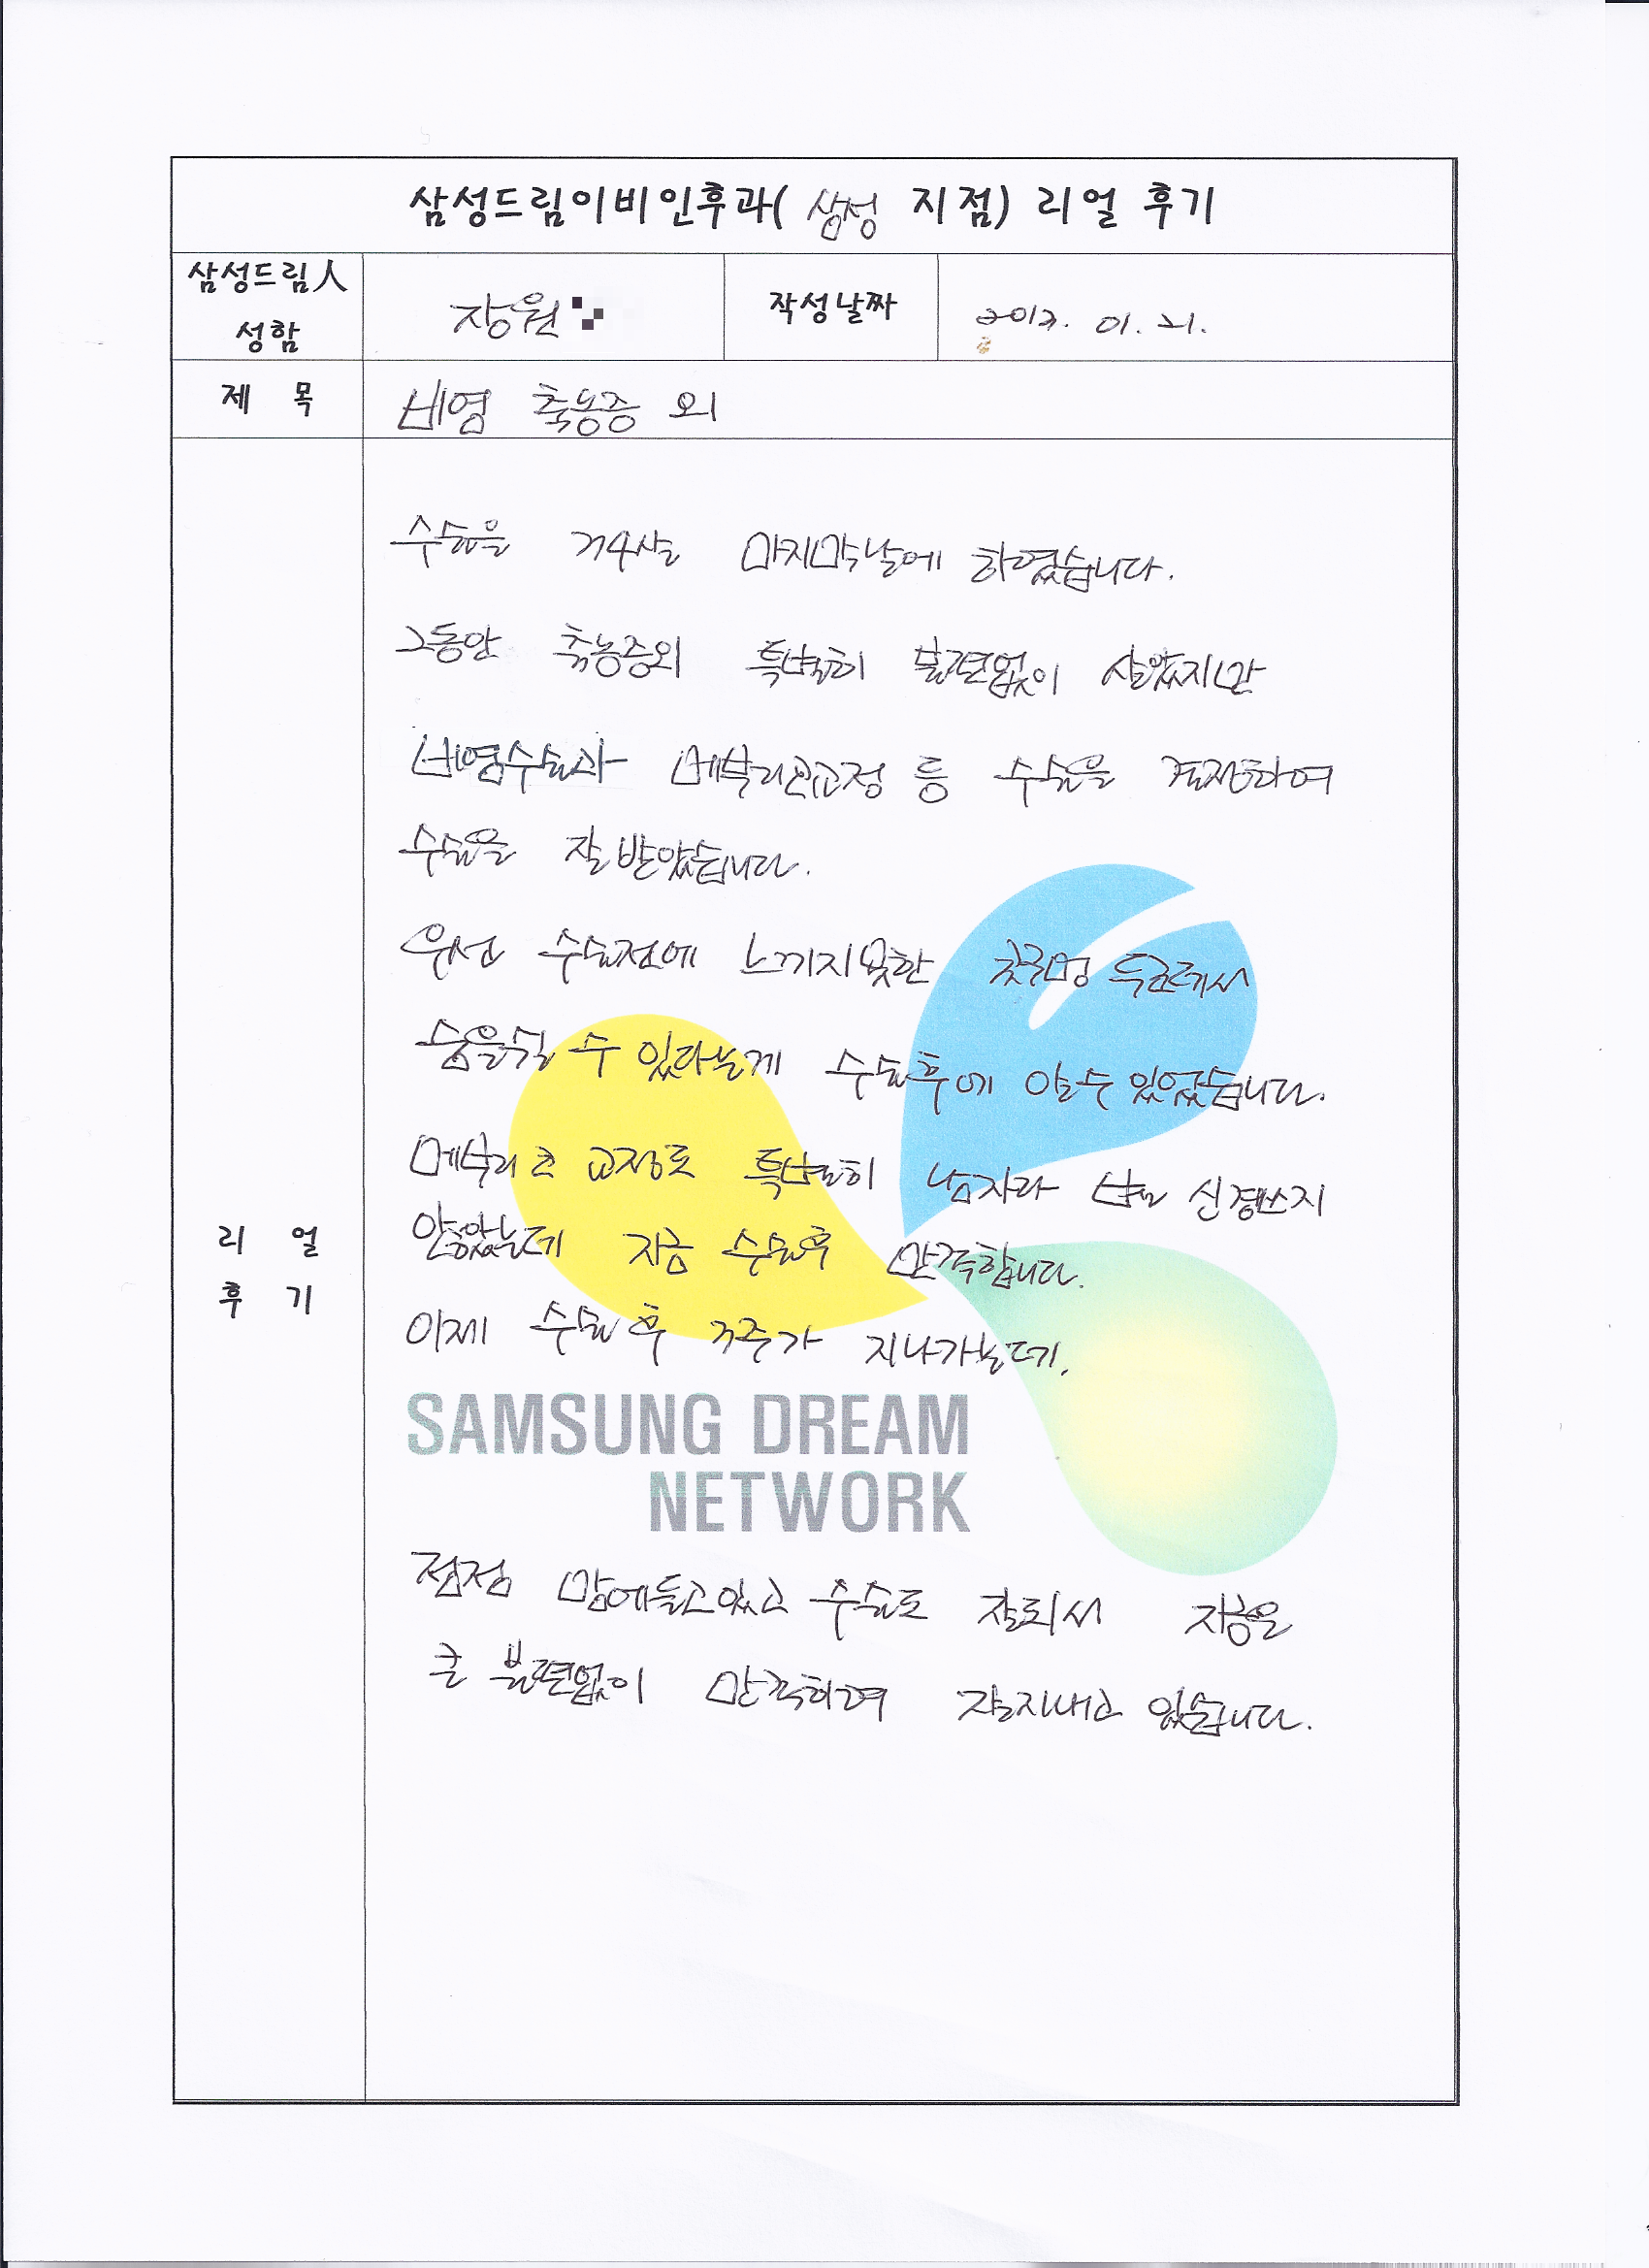 삼성드림이비인후과( 삼성 지점) 리얼 후기
삼성드림人 성함
장원
작성날짜
01. 21.
제 목
비염 축농증 외
수술을 마지막날에 하였습니다.
그동안 축농증외 특별히 불편없이 살았지만
비염수술과 매부리코교정 등 수술을 결정하여
수술을 잘 받았습니다.
우선 수술전에 느끼지못한 콧구멍 두군데서
숨을쉴 수 있다는게 수술후에 알수 있었습니다.
매부리코 교정도 특별히 남자라 별 신경쓰지
않았는데 지금 수술후 만족합니다.
이제 수술 후 3주가 지나가는데.
SAMSUNG DREAM
NETWORK
점점 맘에들고있고 수술도 잘되서 지금은
큰 불편없이 만족하며 잘지내고 있습니다.
리 얼
후 기